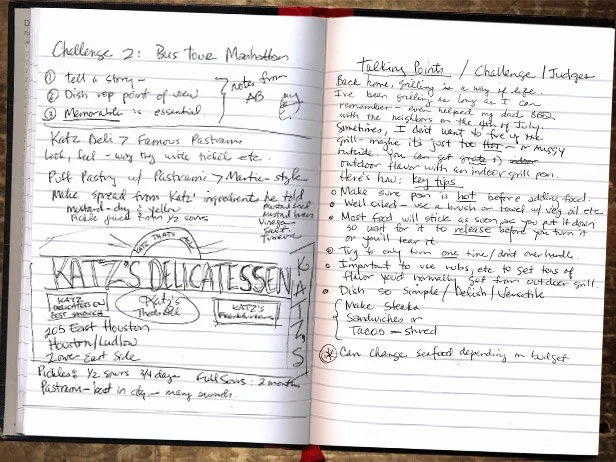 Challenge 2: Bus Tour Manhattan
① tell a story –
② Dish rep point of view
③ Memorable is essential
notes from
AB
Katz Deli > Famous Pastrami
Look, feel – way they wide ticket etc.
Puff Pastry w/ Pastrami > Martie-style
Make spread from Katz' ingredients he told
mustard – dry & yellow
Pickle juice from ½ sours
Mustard seed
Vinegar
Salt
Tumeric
KATZ THAT'S ALL
KATZ'S DELICATESSEN
KATZ'S
KATZ
DELICATESSEN
BEST SANDWICH
Katz's
That's All
KATZ'S
Frankfurters
205 East Houston
Houston/Ludlow
Lower East Side
Pickles: ½ sours 3/4 days Full Sours: 2 months
Pastrami – best in city – many awards.
Talking Points / Challenge / Judges
Back home, grilling is a way of life.
I've been grilling as long as I can
remember – even helped my dad BBQ
with the neighbors on the 4th of July.
Sometimes, I don't want to fire up the
grill – maybe it's just too hot – or muggy
outside. You can get
outdoor flavor with an indoor grill pan.
Here's how: key tips
• Make sure pan is hot before adding food.
• Well oiled – use a brush or towel w/ veg oil etc.
• Most food will stick as soon as you put it down
so wait for it to release before you turn it
or you'll tear it.
• Try to only turn one time / don't over handle.
• Important to use rubs, etc to get tons of
flavor you'd normally get from outdoor grill
• Dish so Simple / Delish / Versatile
Make Steaks
Sandwiches or
Tacos – shred
* Can change seafood depending on budget